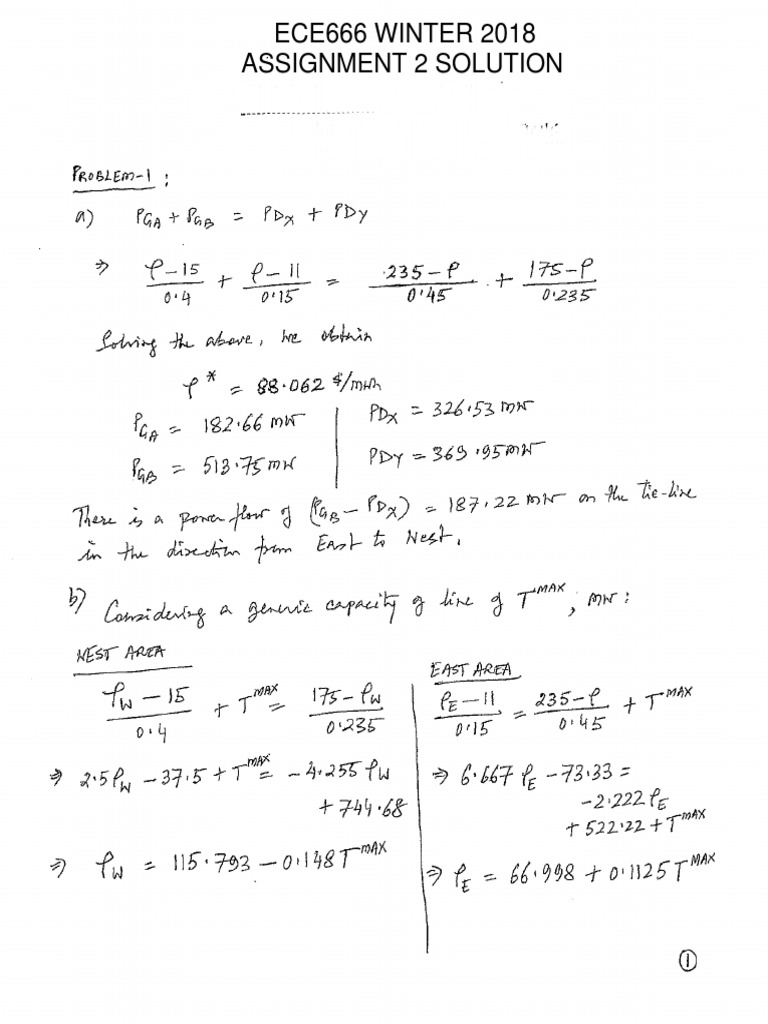 ECE666 WINTER 2018
ASSIGNMENT 2 SOLUTION
PROBLEM-1 :
a) P_GA + P_GB = PD_X + PD_Y
⇒ (ρ-15)/0.4 + (ρ-11)/0.15 = (235-ρ)/0.45 + (175-ρ)/0.235
Solving the above, we obtain
ρ* = 88.062 $/mwh
P_GA = 182.66 MW | PD_X = 326.53 MW
P_GB = 513.75 MW | PD_Y = 369.95 MW
There is a power flow of (P_GB - PD_X) = 187.22 MW on the Tie-line
in the direction from East to West.
b) Considering a generic capacity of line of T^MAX, MW :
WEST AREA
(ρ_W - 15)/0.4 + T^MAX = (175-ρ_W)/0.235
⇒ 2.5ρ_W - 37.5 + T^MAX = -4.255 ρ_W
+ 744.68
⇒ ρ_W = 115.793 - 0.148T^MAX
EAST AREA
(ρ_E - 11)/0.15 = (235-ρ)/0.45 + T^MAX
⇒ 6.667 ρ_E - 73.33 =
-2.222 ρ_E
+ 522.22 + T^MAX
⇒ ρ_E = 66.998 + 0.1125 T^MAX
1